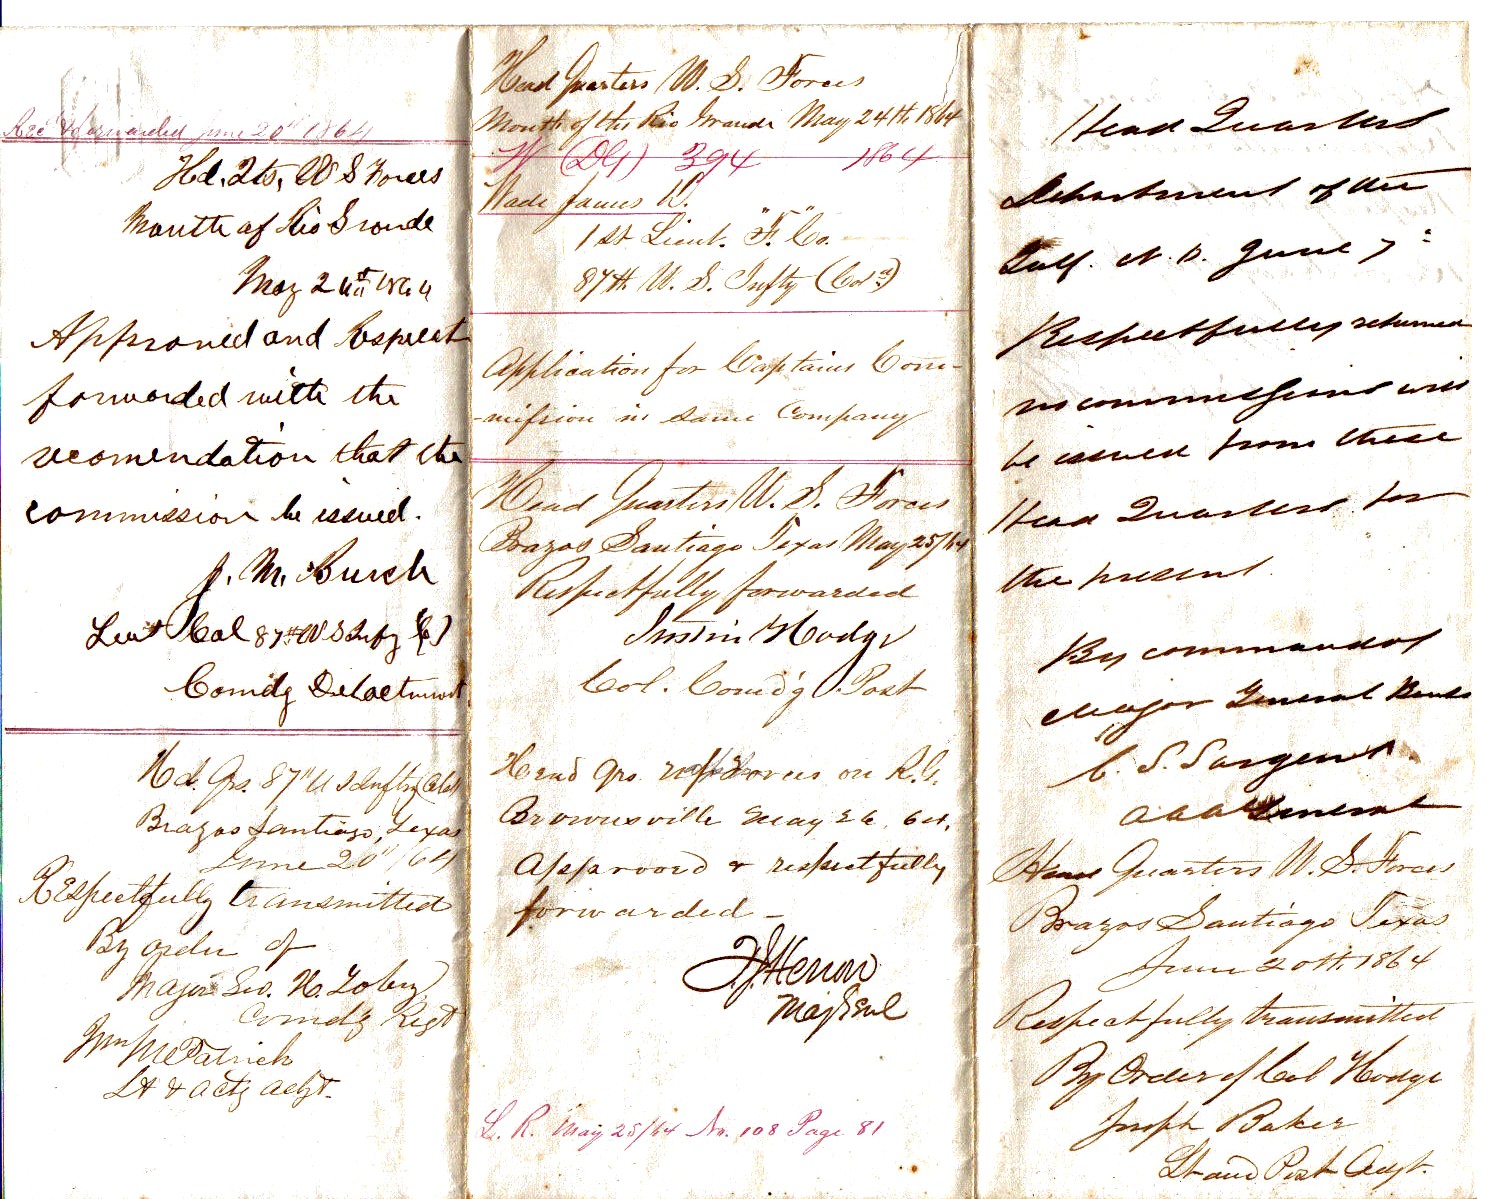 Rec'd & forwarded June 20" 1864
Hd. Qts. U S Forces
Mouth of Rio Grande
May 24th 1864
Approved and Respect
forwarded with the
recomendation that the
commission be issued.
J. M. Burch
Leut Col 87th U S Infy (C)
Comdg Detactment
Hd. Qrs. 87" U S Inftry (Cold)
Brazos Santiago, Texas
June 20" /64
Respectfully transmitted
By order of
Major Geo. H.
Comdg Regt
Wm McPatrick
Lt & actg adgt.
Head Quarters U. S. Forces
Mouth of the Rio Grande May 24th 1864
W (DG) 394 1864
Wade James K.
1st Lieut. "F." Co.
87th U. S. Infty (Cold)
Application for Captains Com-
-mission in same Company
Head Quarters U. S. Forces
Brazos Santiago Texas May 25/64
Respectfully forwarded
Justin Hodge
Col. Comd'g Post
Head Qrs. Forces on R. G.
Brownsville May 26. 64.
Approved & respectfully
forwarded -
F. J. Herron
Maj Genl
L. R. May 25/64 No. 108 Page 81
Head Quarters
Department of the
Gulf. N. O. June 7"
Respectfully returned
no commissions will
be issued from these
Head Quarters for
the present.
By command of
Major General Banks
C. S. Sargent.
A A A General
Head Quarters U. S. Forces
Brazos Santiago Texas
June 20th. 1864
Respectfully transmitted
By Order of Col Hodge
Joseph Baker
Lt and Post Adgt.